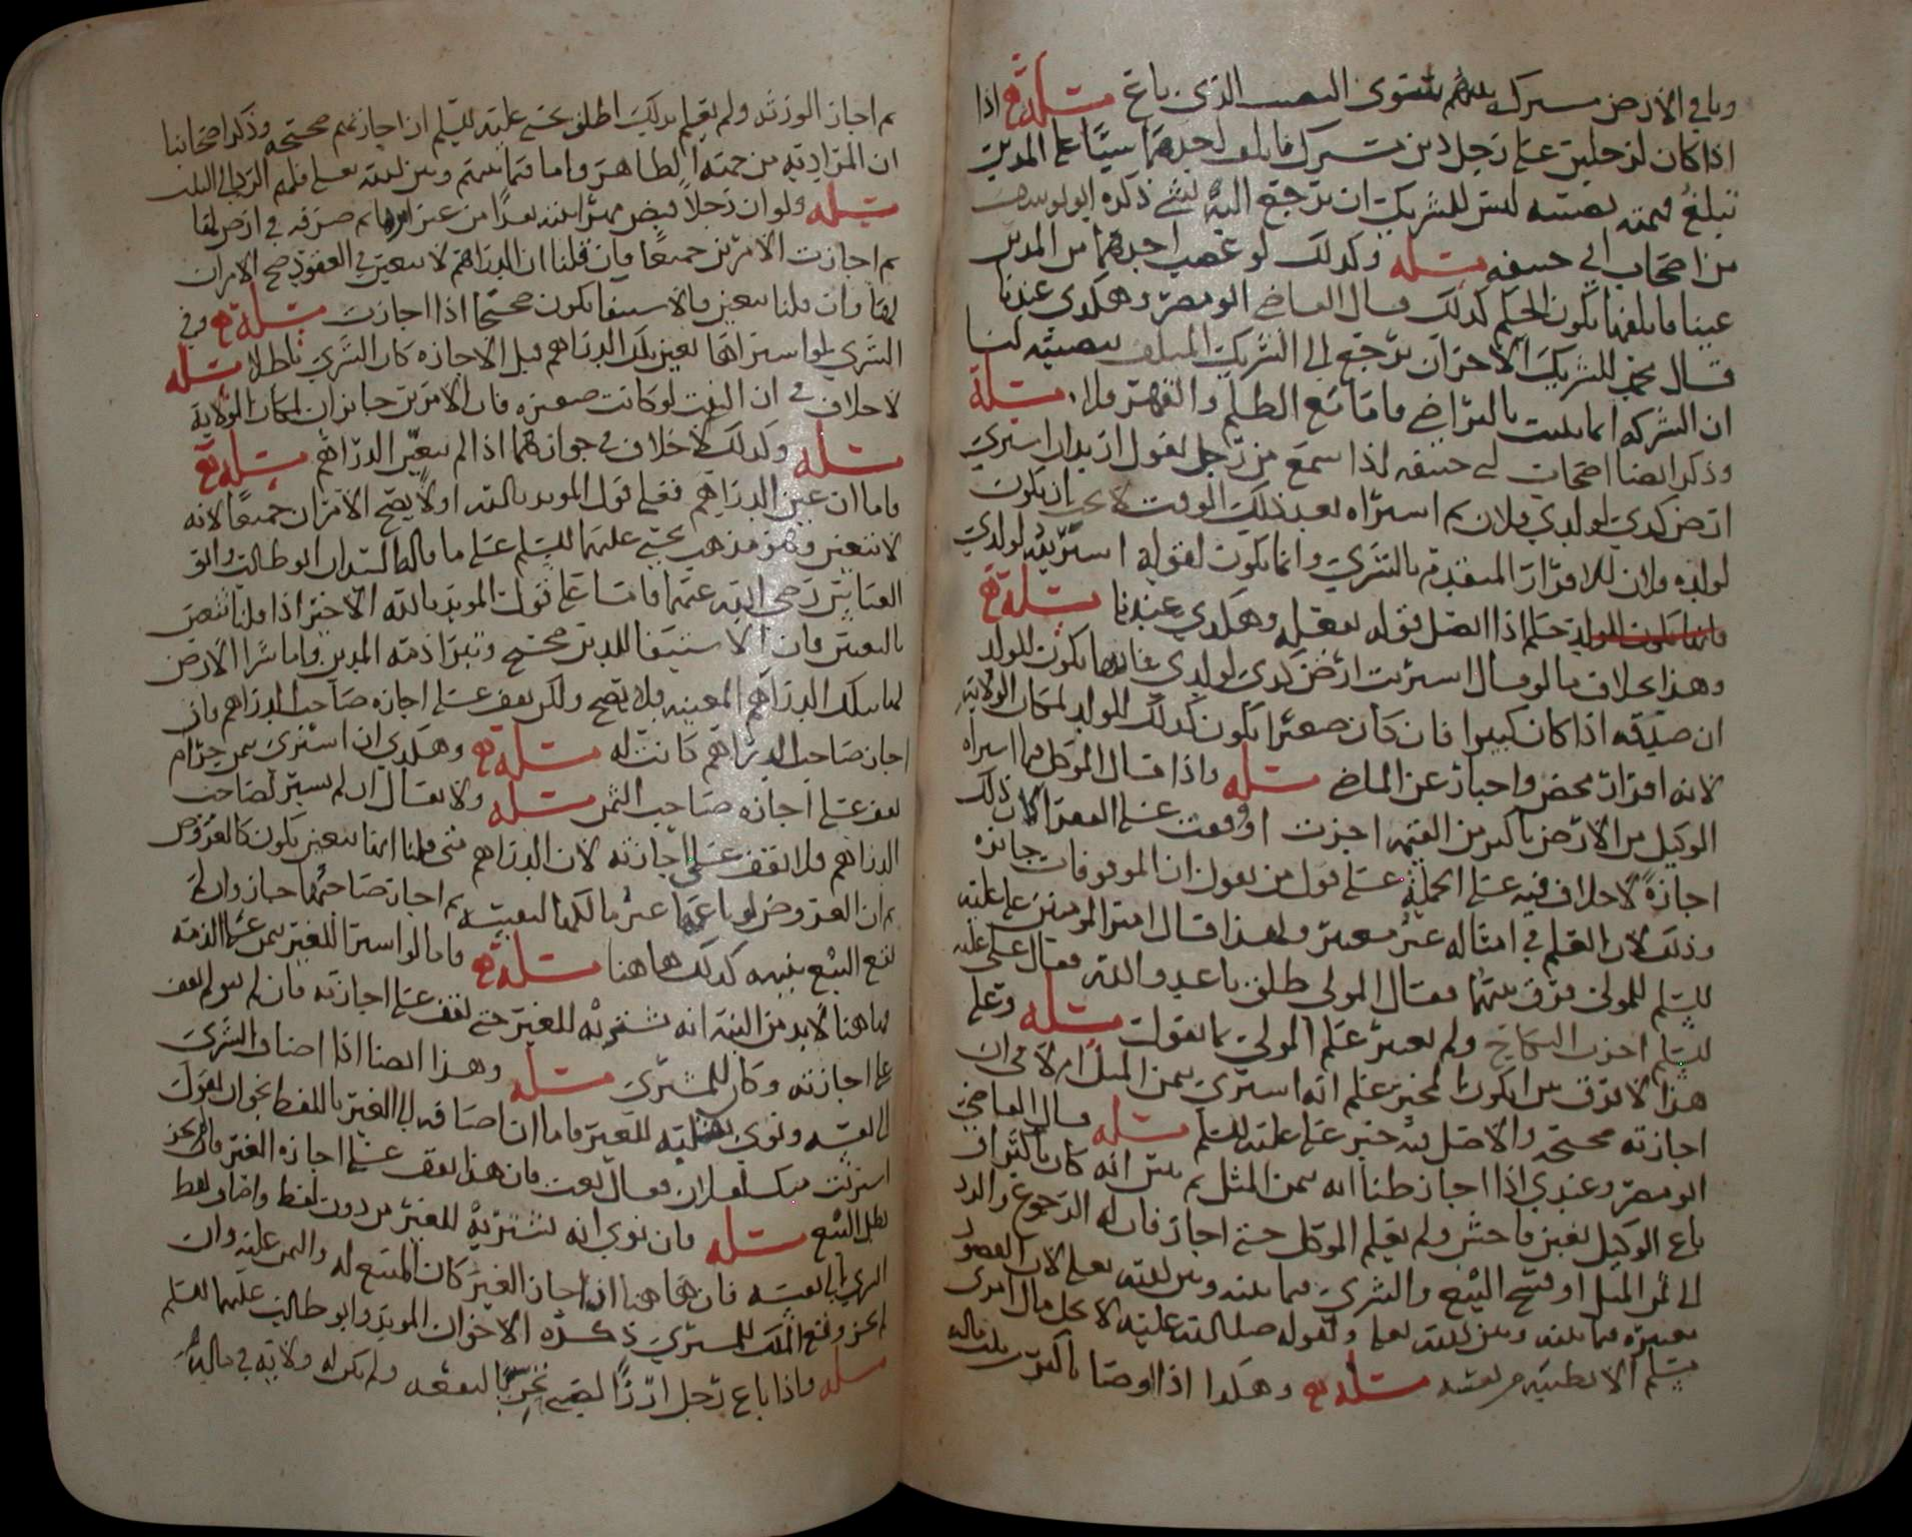 وباقي الأرض مشترك بينهم سوى النصيب الذي باع مسلة اذا
اذا كان لرجلين على رجل دين مشترك فاتلف احدهما شيئا على المديون
تبلغ قيمته نصيبه ليس للشريك ان يرجع اليه بشي ذكره ابو يوسف
من اصحاب ابي حنيفه مسله وكذلك لو غصب احدهما من المديون
عينا فاتلفها يكون الحكم كذلك قال القاضي ابو مضر وهكذي عندنا
قال محمد للشريك الاخر ان يرجع الى الشريك المتلف بنصيبه لنا
ان الشركه انما تثبت بالتراضي فاما مع الظلم والقهر فلا مسلة
وذكر ايضا اصحاب ابي حنيفه اذا سمع من رجل يقول اريد ان اشتري
ارض كذي لولدي فلان ثم اشتراه بعد ذلك الوقت لا يجب ان يكون
لولده ولان للاقرار المتقدم بالشري وانما يكون لقوله اشتريته لولدي
حكم اذا اتصل قوله بفعله وهكذي عندنا مسلة
وهذا بخلاف ما لو قال اشتريت ارض كذي لولدي فانها يكون للولد
ان صدقه اذا كان كبيرا فان كان صغيرا يكون كذلك للولد لمكان الولايه
لانه اقرار محض واخبار عن الماضي مسله واذا قال الموكل فيما اشراه
الوكيل من الارض باكثر من القيمه اجزت او وقعت على الفقرا كان ذلك
اجازة لا خلاف فيه على الجملة على قول من يقول ان الموقوفات جائزه
وذلك لان العلم في امثاله غير معتبر ولهذا قال امير المومنين علي عليه
السلم للمولى فرق بينهما فقال المولى طلق يا عدو الله فقال علي عليه
السلم اجزت النكاح ولم يعتبر علم المولى بما يقول مسله وعلى
هذا لا فرق بين ان يكون المجيز علم انه اشتري بثمن المثل ام لا في ان
اجازته صحيحه والاصل فيه خبر علي عليه السلم مسله قال القاضي
ابو مضر وعندي اذا اجاز ظنا انه بثمن المثل ثم تبين انه كان بالثمن او
باع الوكيل بغبن فاحش ولم يعلم الموكل حتى اجاز فان له الرجوع والرد
الى ثمن المثل او فسخ البيع والشري فيما بينه وبين الله تعلى لان المقصود
بغيره فيما بينه وبين الله تعلى ولقوله صلى الله عليه لا يحل مال امرئ
مسلم الا بطيبة من نفسه مسله وهكذا اذا اوصا باكثر من ثلث ماله
ثم اجاز الورثه ولم يعلم بذلك اطلق يحيى عليه السلم ان اجازتهم صحيحه وذكر اصحابنا
ان المراد به من جهة الظاهر واما فيما بينهم وبين الله تعلى فلهم الرد الى الثلث
مسله ولو ان رجلا قبض مهر ابنته نقدا من غير امرها ثم صرفه في ارض لها
ثم اجازت الامرين جميعا فان قلنا ان الدراهم لا تتعين في العقود صح الامران
لها وان قلنا تتعين فالاستيفا يكون صحيحا اذا اجازت مسلة وفي
الشري لو اشتراها بعين تلك الدراهم قبل الاجازه كان الشري باطلا مسله
لا خلاف في ان البنت لو كانت صغيره فان الامرين جايزان لمكان الولاية
مسله وكذلك لا خلاف في جوازهما اذا لم تتعين الدراهم مسله
واما ان عين الدراهم فعلى قول المويد بالله اولا يصح الامران جميعا لانه
لا تتعين وهو مذهب يحيى عليهما السلم على ما قاله السيدان ابو طالب وابو
العباس رضي الله عنهما فاما على قول المويد بالله الاخير اذا قلنا تتعين
بالتعيين فان الاستيفا للدين صحيح وتبرا ذمة المديون واما شرا الارض
لها بتلك الدراهم المعينه فلا يصح ولكن يقف على اجازه صاحب الدراهم فان
اجاز صاحب الدراهم كانت له مسلة وهكذي ان اشترى بثمن حرام
يقف على اجازه صاحب الثمن مسله ولا يقال ان لم يشتر لصاحب
الدراهم فلا يقف على اجازته لان الدراهم متى قلنا انها تتعين يكون كالعروض
ثم ان العروض لو باعها غير مالكها لنفسه ثم اجاز صاحبها جاز وان لم
يقع البيع بنيته كذلك هاهنا مسلة فاما لو اشترا للغير بثمن على الذمة
فهاهنا لا بد من النية انه يشتريه للغير حتى يقف على اجازته فان لم ينو لم يقف
على اجازته وكان للمشتري مسله وهذا ايضا اذا اضاف الشري
الى نفسه ونوى بقلبه للغير فاما ان اضافه الى الغير باللفظ نحو ان يقول
اشتريت منك لفلان فقال بعت فان هذا يقف على اجازة الغير فان لم يجز
بطل البيع مسله فان نوى انه يشتريه للغير من دون لفظ واضاف لفظ
الشري الى نفسه فان هاهنا اذا اجاز الغير كان المبيع له والثمن عليه وان
لم يجز وقع الملك للمشتري ذكره الاخوان المويد وابو طالب عليهما السلم
مسله واذا باع رجل ارزا لبعض بالنفقه ولم يكن له ولاية في ماله